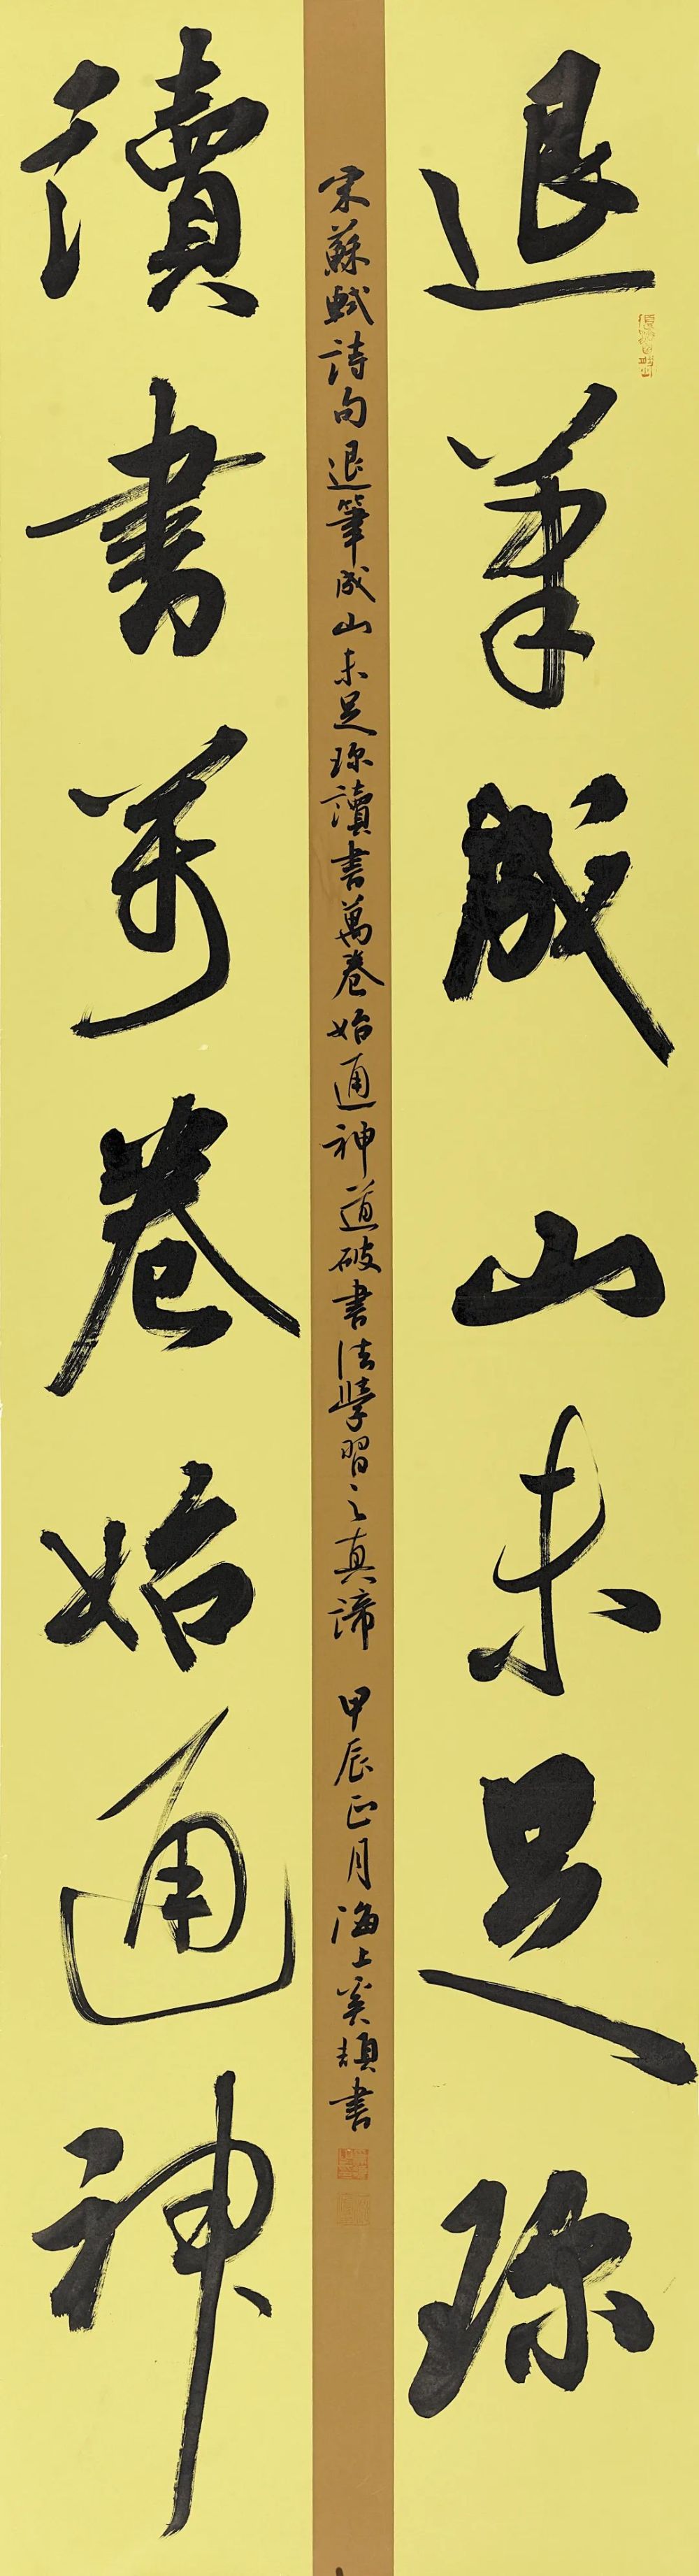 退筆成山未足珎
讀書萬卷始通神
宋蘇軾詩句退筆成山未足珎讀書萬卷始通神道破書法學習之真諦 甲辰正月海上奚頡書